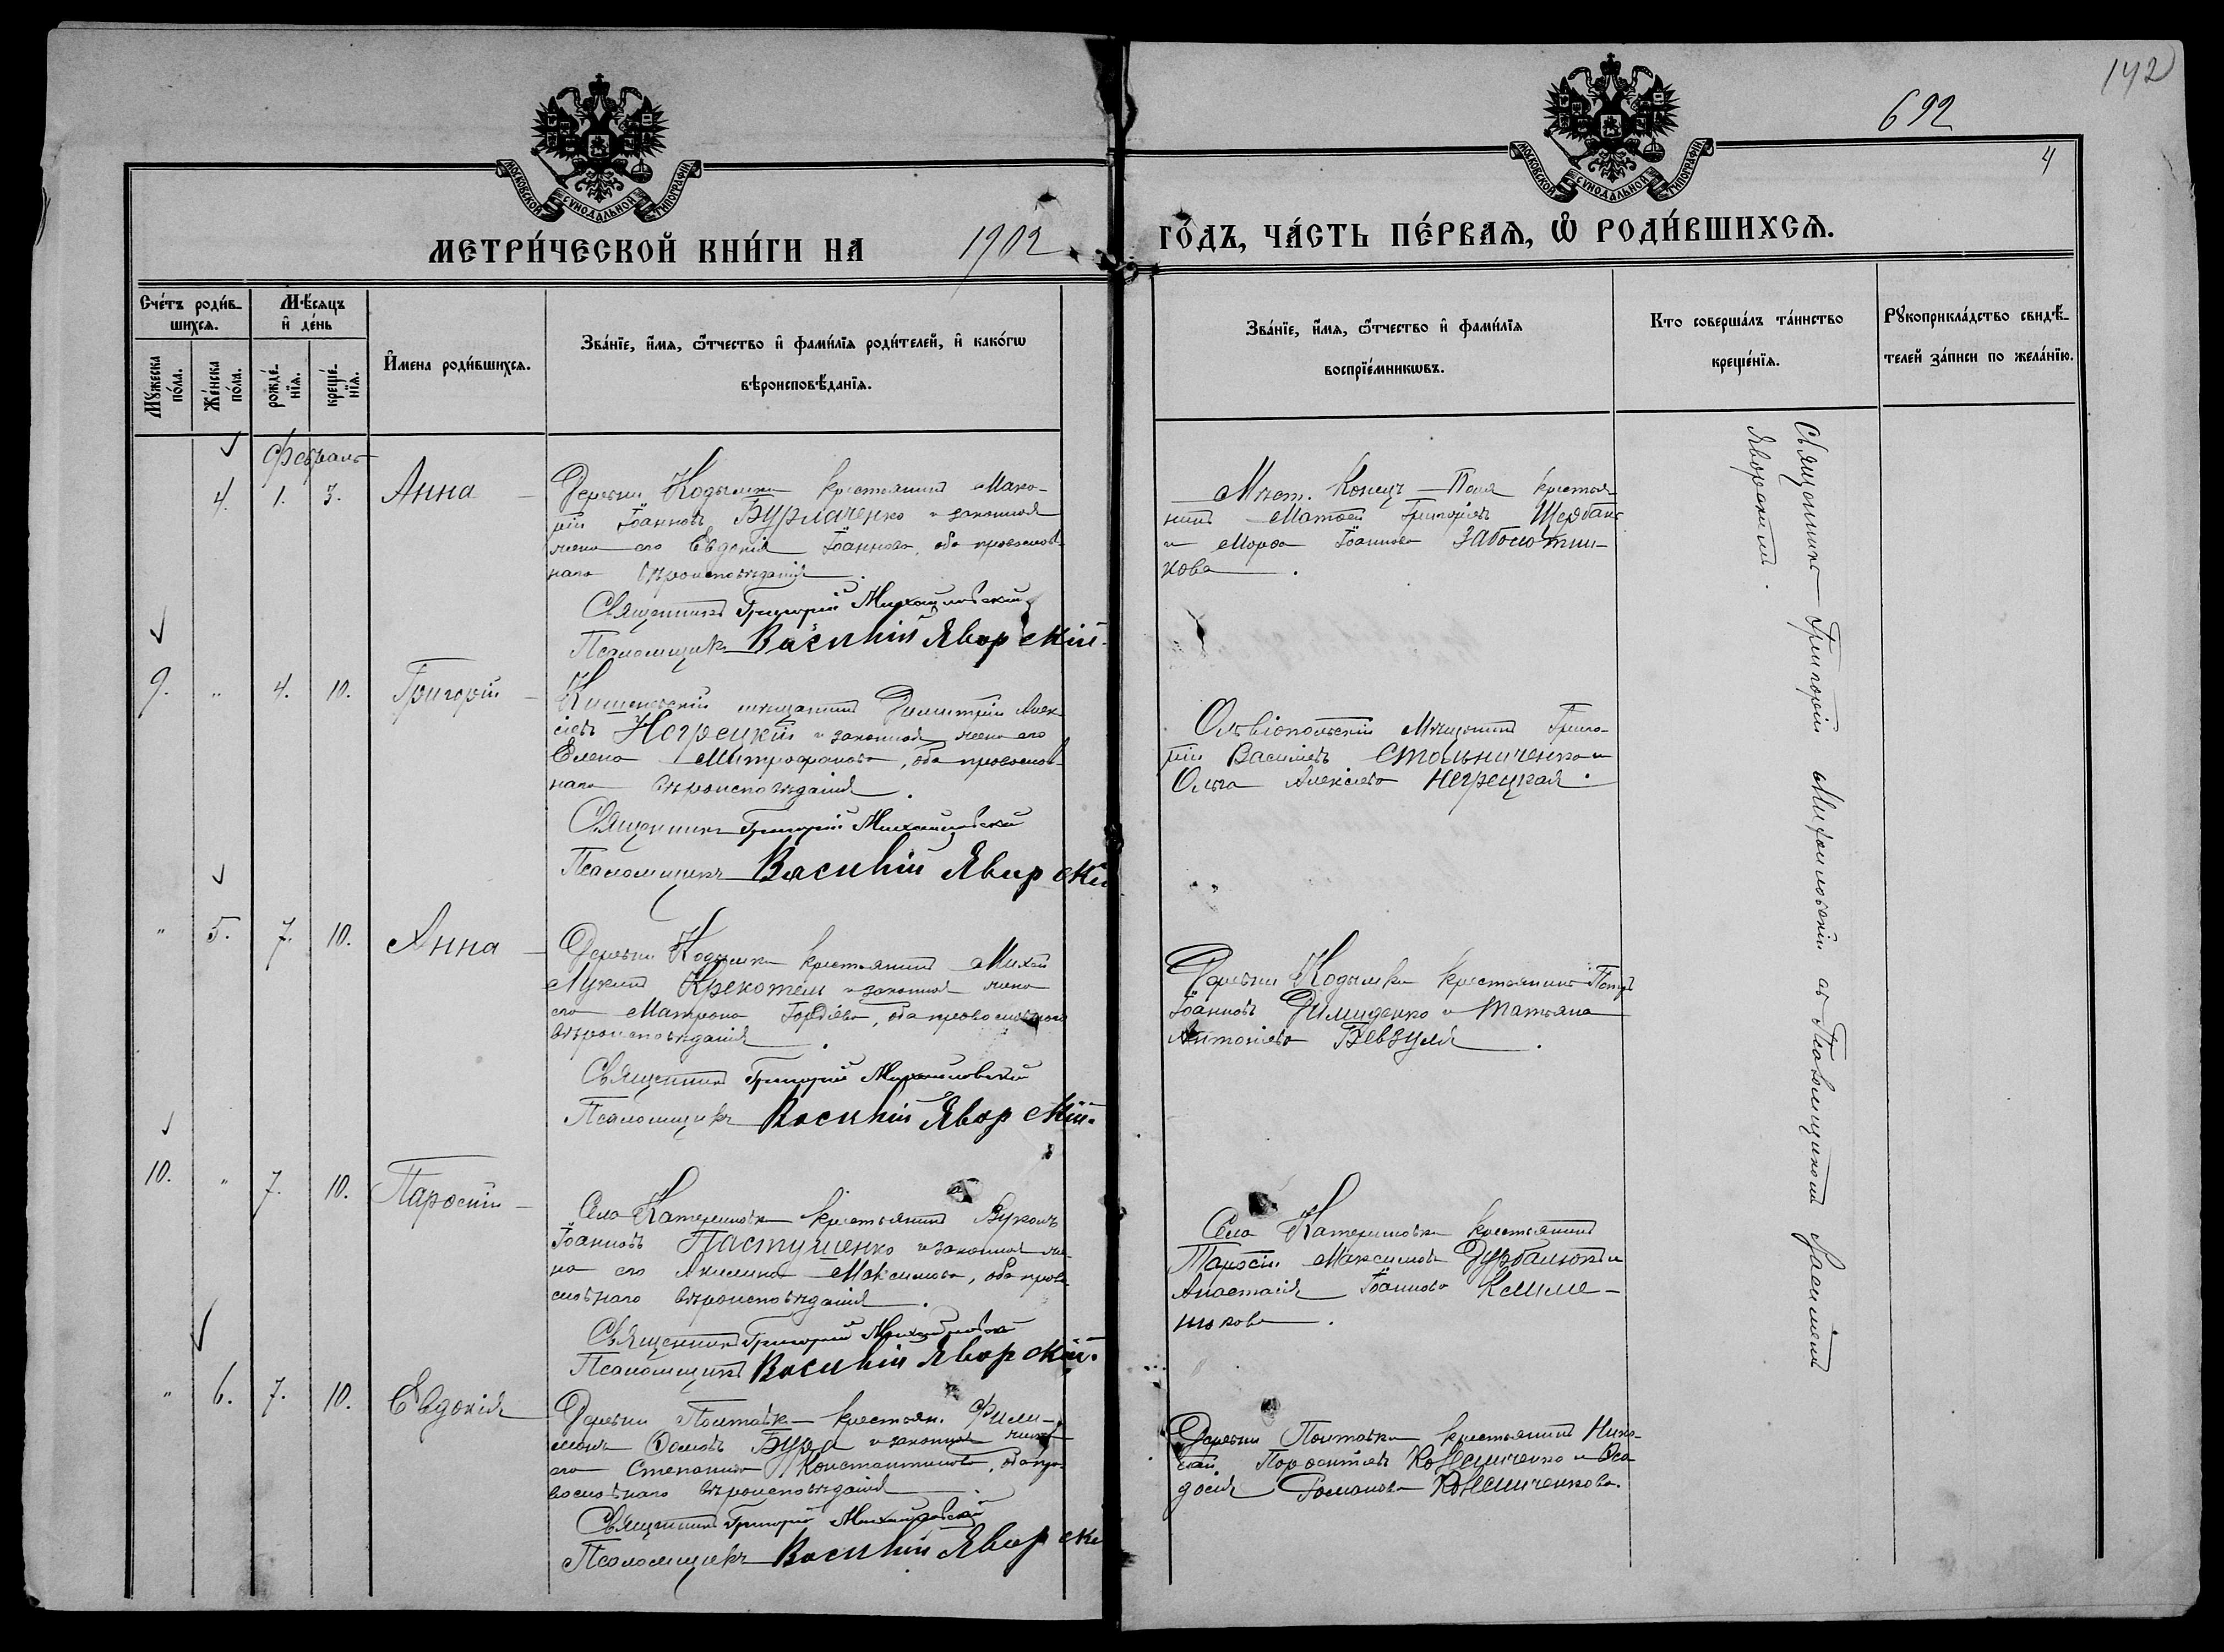 142
692
4
МОСКОВСКОЙ СУНОДАЛЬНОЙ ТИПОГРАФІИ
МОСКОВСКОЙ СУНОДАЛЬНОЙ ТИПОГРАФІИ
МЕТРИ́ЧЕСКОЙ КНИ́ГИ НА 1902
ГО́ДЪ, ЧА́СТЬ ПЕ́РВАѦ, Ѽ РОДИ́ВШИХСѦ.
Сче́тъ роди́в-
шихсѧ.
Мꙋ́жеска по́ла.
Же́нска по́ла.
Мѣ́сѧцъ
и҆ де́нь
рожде́-нїѧ.
креще́-нїѧ.
И҆мена роди́вшихсѧ.
Зва́нїе, и҆́мѧ, ѻ҆́тчество и҆ фами́лїѧ роди́телей, и҆ како́гѡ
вѣроисповѣ́данїѧ.
Зва́нїе, и҆́мѧ, ѻ҆́тчество и҆ фами́лїѧ
воспрїе́мникѡвъ.
Кто соверша́лъ та́инство
креще́нїѧ.
Рꙋкоприкла́дство свидѣ́-
телей за́писи по жела́нїю.
Февраль
4. 1. 3. Анна
Деревни Кодымки крестьянинъ Мака-
рій Іоанновъ Бурлаченко и законная
жена его Евдокія Іоаннова, оба православ-
наго вѣроисповѣданія.
Священникъ Григорій Михайловскій
Псаломщикъ Василій Яворскій.
Мѣст. Конец-Поля крестья-
нинъ Матѳей Григоріевъ Щербань
и Марѳа Іоаннова Заболотни-
кова.
9. " 4. 10. Григорій
Кишеневскій мѣщанинъ Димитрій Алек-
сіевъ Негрецкій и законная жена его
Елена Митрофанова, оба православ-
наго вѣроисповѣданія.
Священникъ Григорій Михайловскій
Псаломщикъ Василій Яворскій
Ольвіопольскій Мѣщанинъ Григо-
рій Васильевъ Стольниченко и
Ольга Алексіева Негрецкая.
" 5. 7. 10. Анна
Деревни Кодымки крестьянинъ Михей
Лукинъ Крекотень и законная жена
его Матрона Гордіева, оба православнаго
вѣроисповѣданія.
Священникъ Григорій Михайловскій
Псаломщикъ Василій Яворскій.
Деревни Кодымки крестьянинъ Петръ
Іоанновъ Димиденко и Татьяна
Антоніева Бевзуля.
10. " 7. 10. Парѳеній
Села Катериновки крестьянинъ Вуколъ
Іоанновъ Пастушенко и законная же-
на его Акилина Максимова, оба право-
славнаго вѣроисповѣданія.
Священникъ Григорій Михайловскій
Псаломщикъ Василій Яворскій.
Села Катериновки крестьянинъ
Тарасій Максимовъ и
Анастасія Іоаннова
" 6. 7. 10. Евдокія
Деревни Полтавки крестьян. Фили-
монъ Ѳомовъ Бура и законная жена
его Степанида Константинова, оба пра-
вославнаго вѣроисповѣданія.
Священникъ Григорій Михайловскій
Псаломщикъ Василій Яворскі
Деревни Полтавки крестьянинъ Нико-
лай Парѳеніевъ и Ѳео-
досія Романова
Священникъ Григорій Михайловскій съ Псаломщикомъ Василіемъ
Яворскимъ.